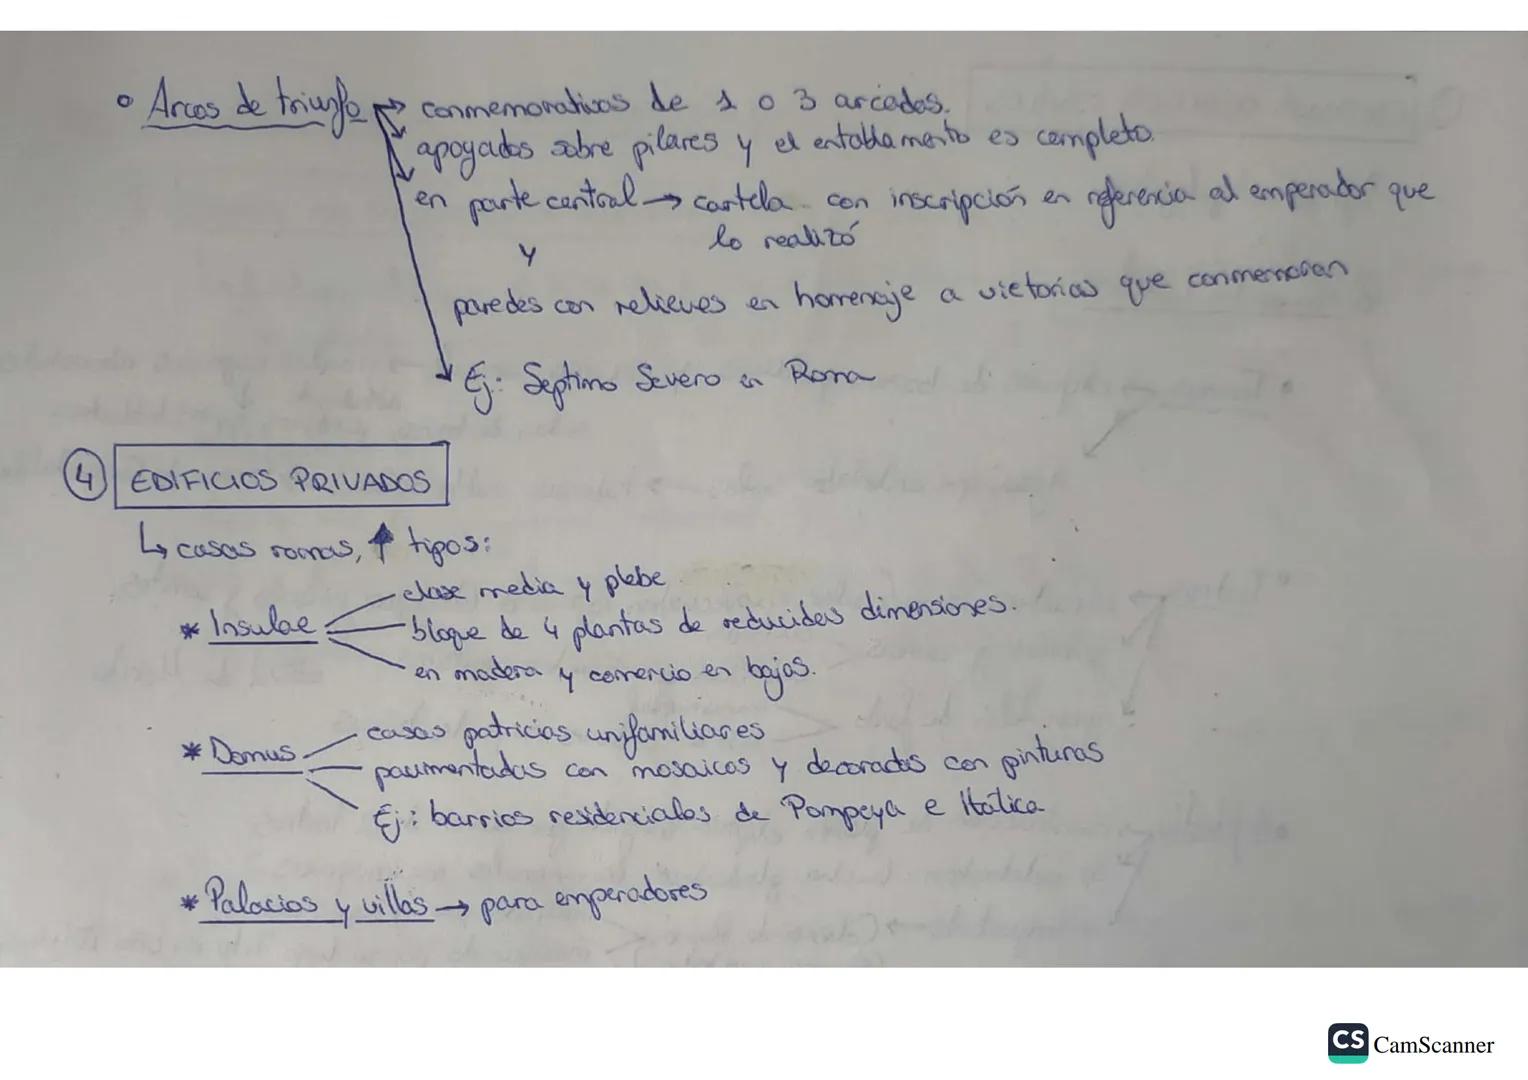 ° Arcos de triunfo → conmemorativos de 1 o 3 arcadas.
apoyados sobre pilares y el entablamento es completo.
en parte central → cartela con inscripción en referencia al emperador que
lo realizó
y
paredes con relieves en homenaje a victorias que conmemoran
Ej.: Septimo Severo en Roma
④ EDIFICIOS PRIVADOS
↳ casas romas, ↑ tipos:
clase media y plebe
* Insulae
bloque de 4 plantas de reducidas dimensiones.
en madera y comercio en bajos.
casas patricias unifamiliares
* Domus
pavimentadas con mosaicos y decoradas con pinturas
Ej.: barrios residenciales de Pompeya e Itálica
* Palacios y villas → para emperadores
CS CamScanner